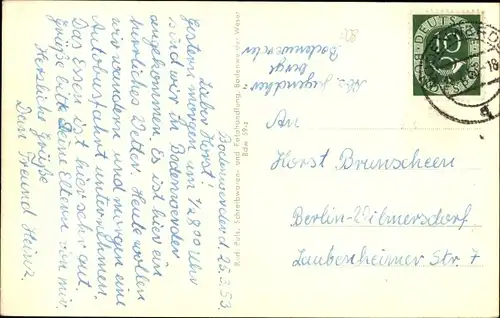 Bodenwerder d. 25.3.53.
Lieber Horst!
Gestern morgen um 1/2 8 00 Uhr
sind wir in Bodenwerder
angekommen. Es ist hier ein
herrliches Wetter. Heute wollen
wir wandern und morgen eine
Autobusfahrt unternehmen.
Das Essen ist hier sehr gut.
Grüße bitte Deine Eltern von mir.
Herzliche Grüße
Dein Freund Heinz.
Buch, Papier, Schreibwaren- und Fotohandlung, Bodenwerder-Weser
Abs. Jugendher-
berge
Bodenwerder
DEUTSCHE
10
An
Horst Brunscheen
Berlin-Wilmersdorf
Laubenheimer Str. 7